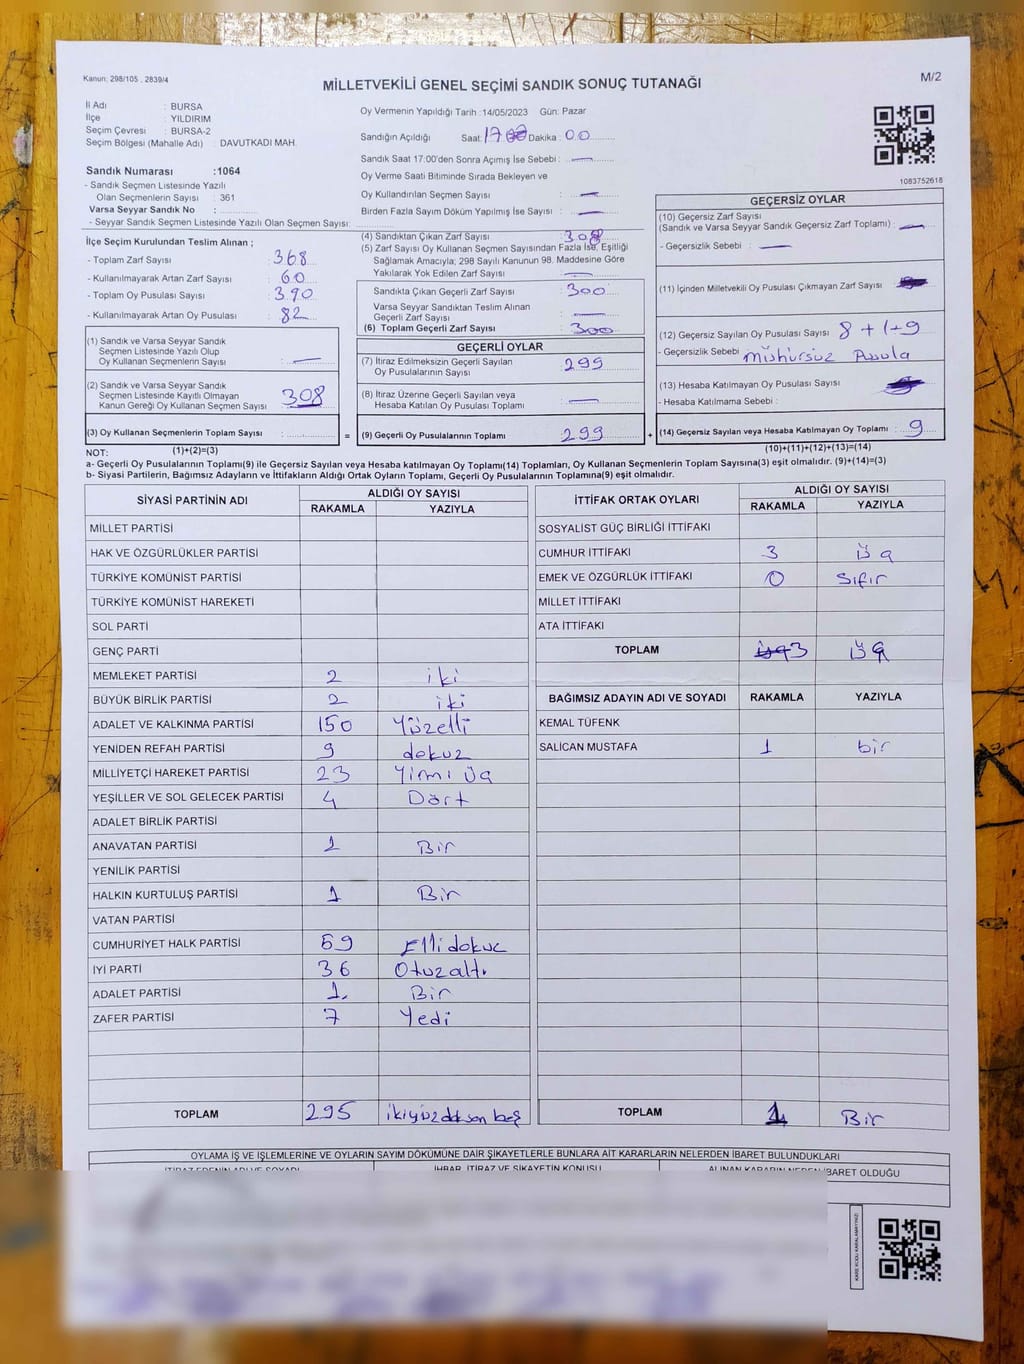 Kanun: 298/105 , 2839/4
MİLLETVEKİLİ GENEL SEÇİMİ SANDIK SONUÇ TUTANAĞI
M/2
İl Adı : BURSA
İlçe : YILDIRIM
Seçim Çevresi : BURSA-2
Seçim Bölgesi (Mahalle Adı) : DAVUTKADI MAH.
Oy Vermenin Yapıldığı Tarih :14/05/2023 Gün: Pazar
Sandığın Açıldığı Saat: 17 Dakika 00
Sandık Saat 17:00'den Sonra Açımış İse Sebebi :
Oy Verme Saati Bitiminde Sırada Bekleyen ve
Oy Kullandırılan Seçmen Sayısı :
Birden Fazla Sayım Döküm Yapılmış İse Sayısı :
1083752618
Sandık Numarası :1064
- Sandık Seçmen Listesinde Yazılı
Olan Seçmenlerin Sayısı : 361
Varsa Seyyar Sandık No :
- Seyyar Sandık Seçmen Listesinde Yazılı Olan Seçmen Sayısı:
İlçe Seçim Kurulundan Teslim Alınan ;
- Toplam Zarf Sayısı : 368
- Kullanılmayarak Artan Zarf Sayısı : 60
- Toplam Oy Pusulası Sayısı : 390
- Kullanılmayarak Artan Oy Pusulası : 82
(1) Sandık ve Varsa Seyyar Sandık
Seçmen Listesinde Yazılı Olup
Oy Kullanan Seçmenlerin Sayısı :
(2) Sandık ve Varsa Seyyar Sandık
Seçmen Listesinde Kayıtlı Olmayan
Kanun Gereği Oy Kullanan Seçmen Sayısı : 308
(3) Oy Kullanan Seçmenlerin Toplam Sayısı :
(4) Sandıktan Çıkan Zarf Sayısı : 308
(5) Zarf Sayısı Oy Kullanan Seçmen Sayısından Fazla İse, Eşitliği
Sağlamak Amacıyla; 298 Sayılı Kanunun 98. Maddesine Göre
Yakılarak Yok Edilen Zarf Sayısı :
Sandıkta Çıkan Geçerli Zarf Sayısı : 300
Varsa Seyyar Sandıktan Teslim Alınan
Geçerli Zarf Sayısı :
(6) Toplam Geçerli Zarf Sayısı : 300
GEÇERLİ OYLAR
(7) İtiraz Edilmeksizin Geçerli Sayılan
Oy Pusulalarının Sayısı : 299
(8) İtiraz Üzerine Geçerli Sayılan veya
Hesaba Katılan Oy Pusulası Toplamı :
= (9) Geçerli Oy Pusulalarının Toplamı : 299 +
GEÇERSİZ OYLAR
(10) Geçersiz Zarf Sayısı
(Sandık ve Varsa Seyyar Sandık Geçersiz Zarf Toplamı) :
- Geçersizlik Sebebi :
(11) İçinden Milletvekili Oy Pusulası Çıkmayan Zarf Sayısı :
(12) Geçersiz Sayılan Oy Pusulası Sayısı : 8+1=9
- Geçersizlik Sebebi : mühürsüz Pusula
(13) Hesaba Katılmayan Oy Pusulası Sayısı :
- Hesaba Katılmama Sebebi :
(14) Geçersiz Sayılan veya Hesaba Katılmayan Oy Toplamı : 9
NOT: (1)+(2)=(3)
(10)+(11)+(12)+(13)=(14)
a- Geçerli Oy Pusulalarının Toplamı(9) ile Geçersiz Sayılan veya Hesaba katılmayan Oy Toplamı(14) Toplamları, Oy Kullanan Seçmenlerin Toplam Sayısına(3) eşit olmalıdır. (9)+(14)=(3)
b- Siyasi Partilerin, Bağımsız Adayların ve İttifakların Aldığı Ortak Oyların Toplamı, Geçerli Oy Pusulalarının Toplamına(9) eşit olmalıdır.
SİYASİ PARTİNİN ADI ALDIĞI OY SAYISI
RAKAMLA YAZIYLA
MİLLET PARTİSİ
HAK VE ÖZGÜRLÜKLER PARTİSİ
TÜRKİYE KOMÜNİST PARTİSİ
TÜRKİYE KOMÜNİST HAREKETİ
SOL PARTİ
GENÇ PARTİ
MEMLEKET PARTİSİ 2 iki
BÜYÜK BİRLİK PARTİSİ 2 iki
ADALET VE KALKINMA PARTİSİ 150 Yüzelli
YENİDEN REFAH PARTİSİ 9 dokuz
MİLLİYETÇİ HAREKET PARTİSİ 23 Yirmi üç
YEŞİLLER VE SOL GELECEK PARTİSİ 4 Dört
ADALET BİRLİK PARTİSİ
ANAVATAN PARTİSİ 1 Bir
YENİLİK PARTİSİ
HALKIN KURTULUŞ PARTİSİ 1 Bir
VATAN PARTİSİ
CUMHURİYET HALK PARTİSİ 59 Elli dokuz
İYİ PARTİ 36 Otuzaltı
ADALET PARTİSİ 1 Bir
ZAFER PARTİSİ 7 Yedi
TOPLAM 295 ikiyüzdoksan beş
İTTİFAK ORTAK OYLARI ALDIĞI OY SAYISI
RAKAMLA YAZIYLA
SOSYALİST GÜÇ BİRLİĞİ İTTİFAKI
CUMHUR İTTİFAKI 3 üç
EMEK VE ÖZGÜRLÜK İTTİFAKI 0 Sıfır
MİLLET İTTİFAKI
ATA İTTİFAKI
TOPLAM 3 üç
BAĞIMSIZ ADAYIN ADI VE SOYADI RAKAMLA YAZIYLA
KEMAL TÜFENK
SALİCAN MUSTAFA 1 bir
TOPLAM 1 Bir
OYLAMA İŞ VE İŞLEMLERİNE VE OYLARIN SAYIM DÖKÜMÜNE DAİR ŞİKAYETLERLE BUNLARA AİT KARARLARIN NELERDEN İBARET BULUNDUKLARI
İTİRAZ EDENİN ADI VE SOYADI İHBAR, İTİRAZ VE ŞİKAYETİN KONUSU ALINAN KARARIN NEDEN İBARET OLDUĞU
KARE KODU KARALAMAYINIZ!